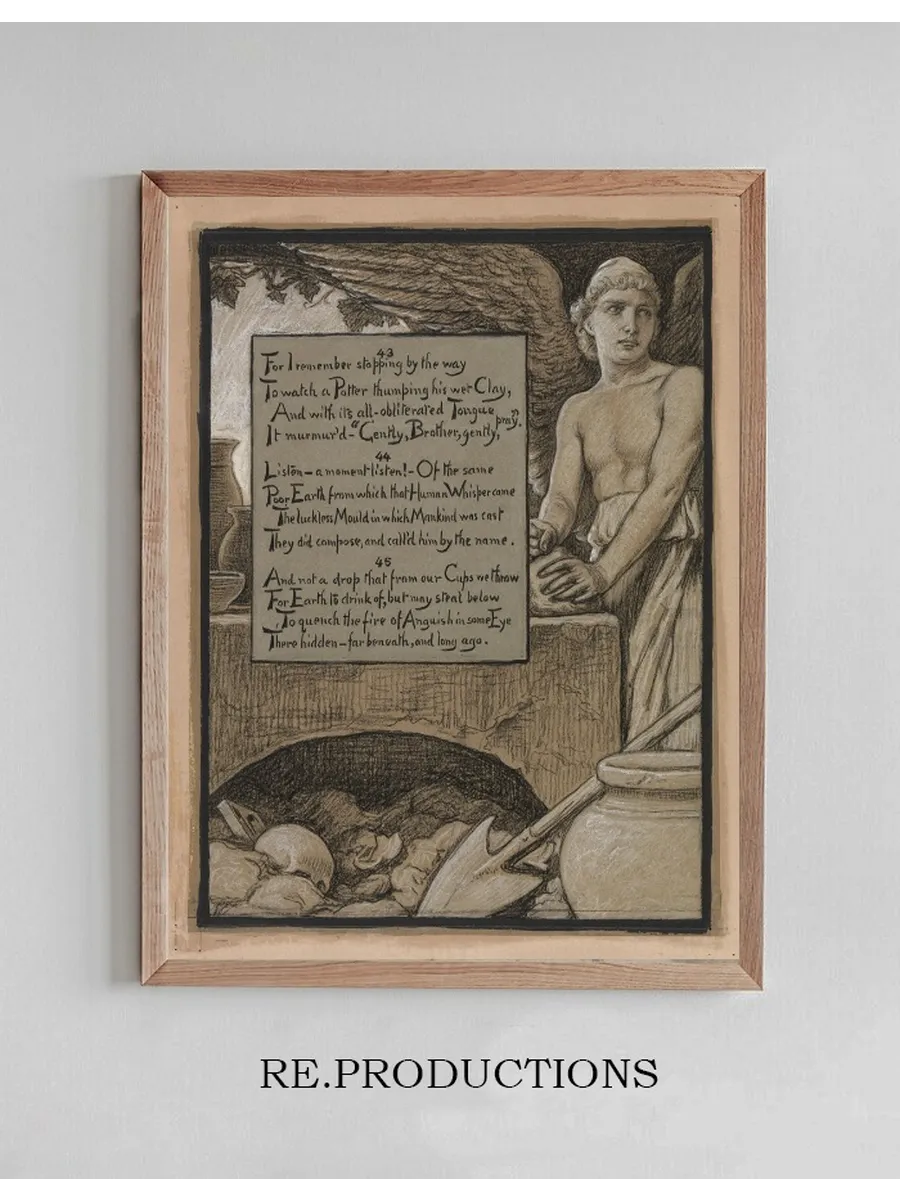 43
For I remember stopping by the way
To watch a Potter thumping his wet Clay,
And with its all-obliterated Tongue
It murmur'd-"Gently, Brother, gently, pray".
44
Listen-a moment listen!-Of the same
Poor Earth from which that Human Whisper came
The luckless Mould in which Mankind was cast
They did compose, and call'd him by the name.
45
And not a drop that from our Cups we throw
For Earth to drink of, but may steal below
To quench the fire of Anguish in some Eye
There hidden-far beneath, and long ago.
RE.PRODUCTIONS